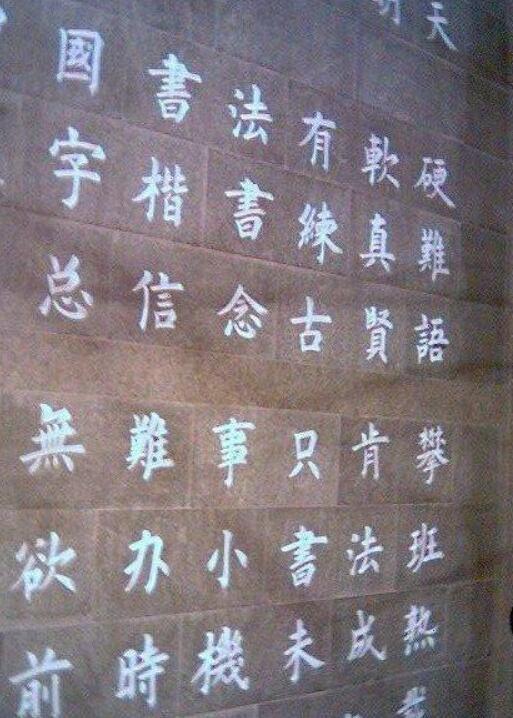 天
國書法有軟硬
字楷書練真難
总信念古賢語
無難事只肯攀
欲办小書法班
前時機未成熱